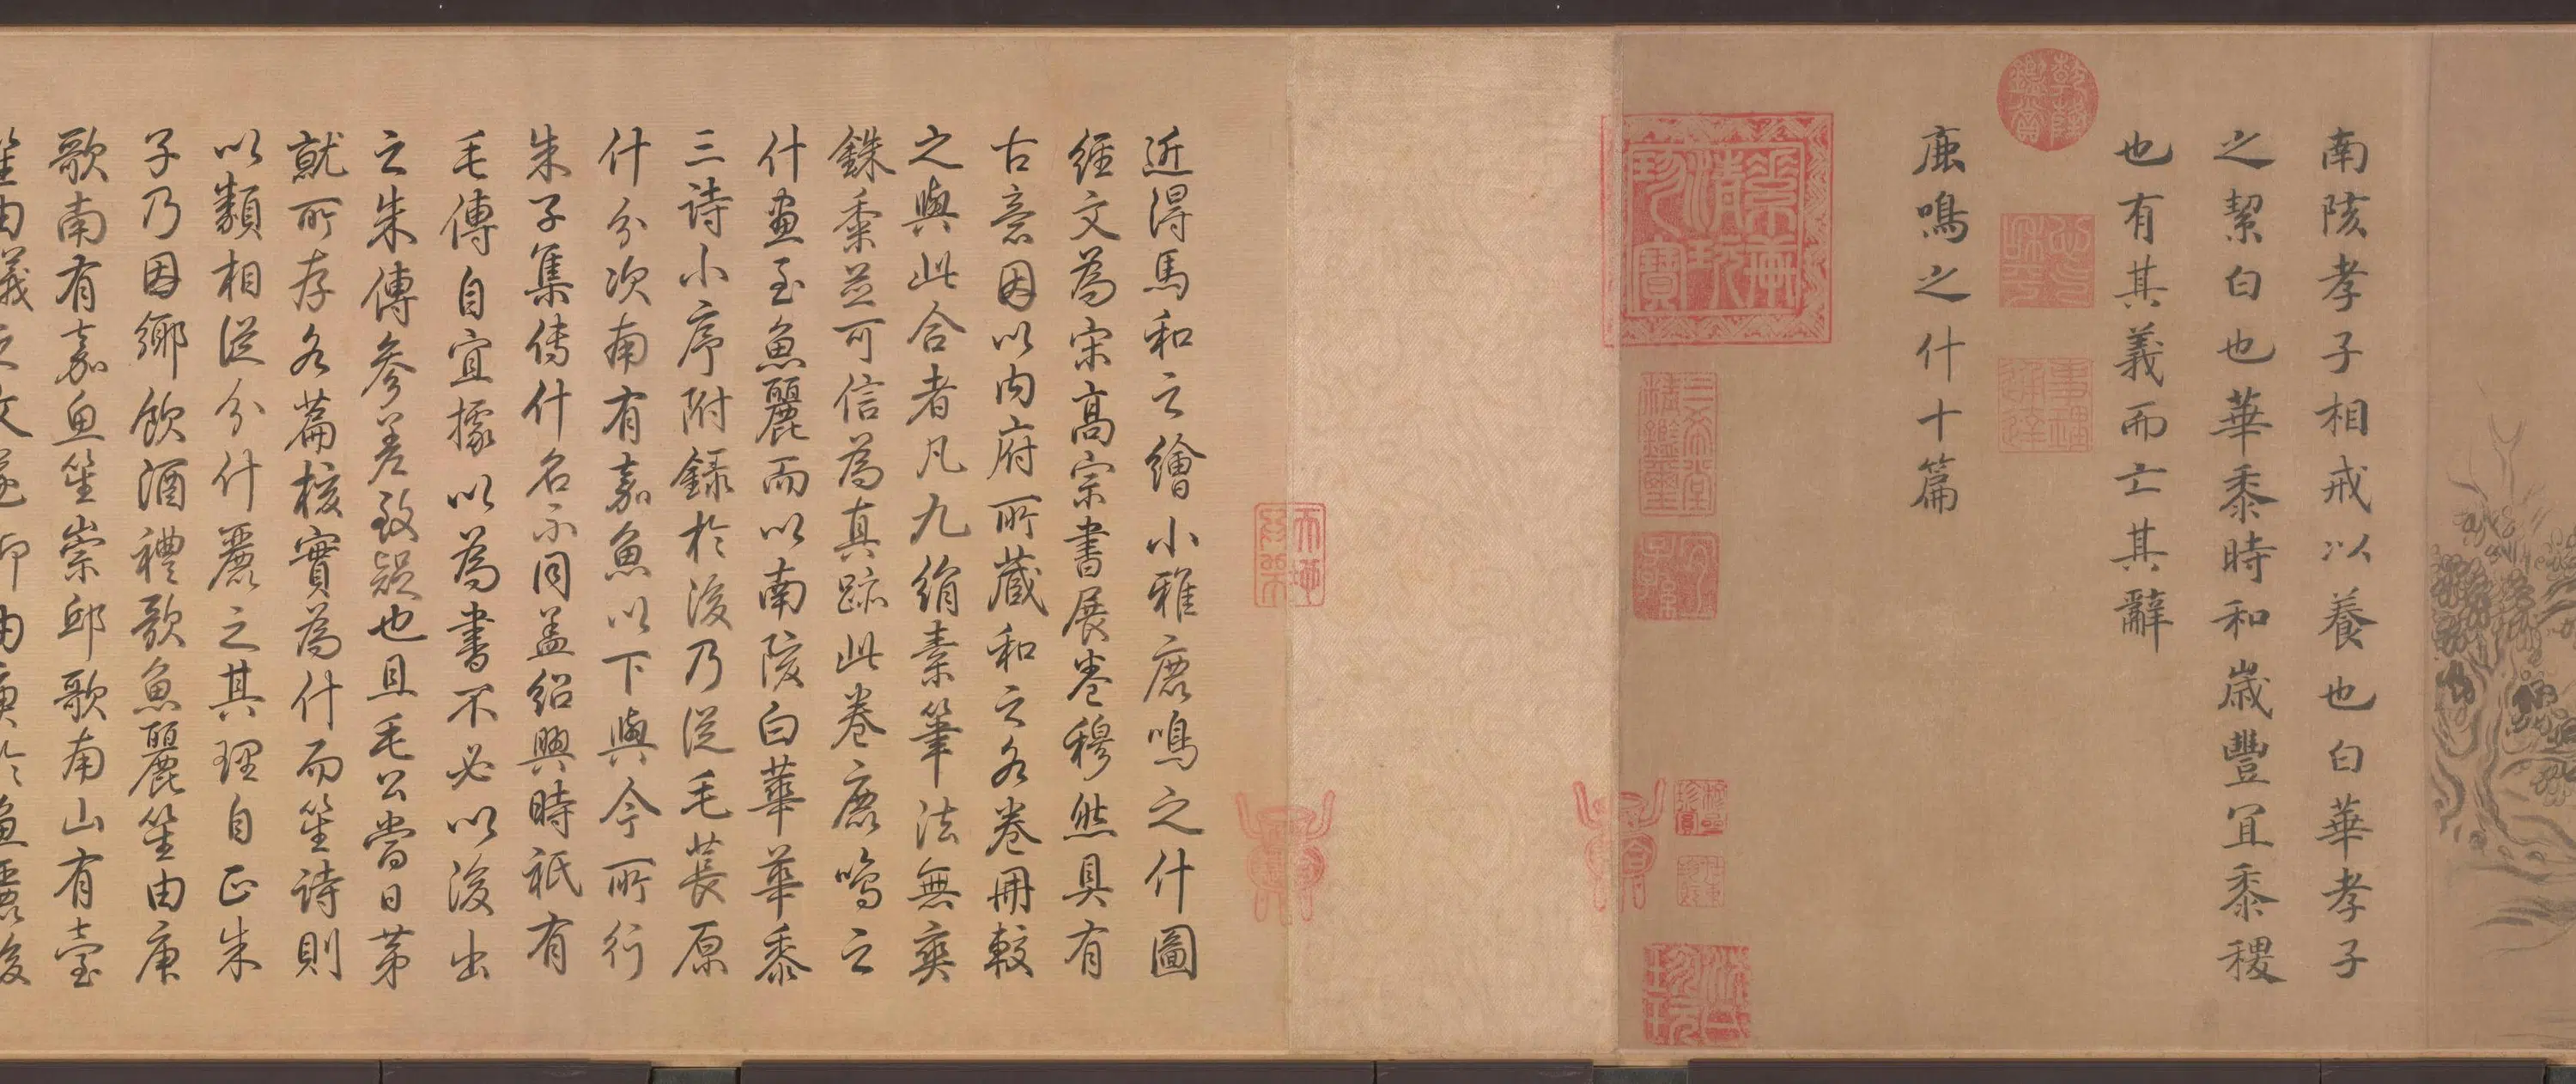 南陔孝子相戒以養也白華孝子
之絜白也華黍時和歲豐宜黍稷
也有其義而亡其辭
鹿鳴之什十篇
乾隆鑑賞
三希堂精鑑璽
宜子孫
近得馬和之繪小雅鹿鳴之什圖
經文為宋高宗書展卷穆然具有
古意因以內府所藏和之各卷冊較
之與此合者凡九絹素筆法無爽
銖黍並可信為真跡此卷鹿鳴之
什畫至魚麗而以南陔白華華黍
三詩小序附錄於後乃從毛萇原
什分次南有嘉魚以下與今所行
朱子集傳什名不同蓋紹興時祇有
毛傳自宜據以為書不必以後出
之朱傳參差致疑也且毛公當日第
就所存各篇核實為什而笙詩則
以類相從分什麗之其理自正朱
子乃因鄉飲酒禮歌魚麗笙由庚
歌南有嘉魚笙崇邱歌南山有臺
笙由儀之文遂